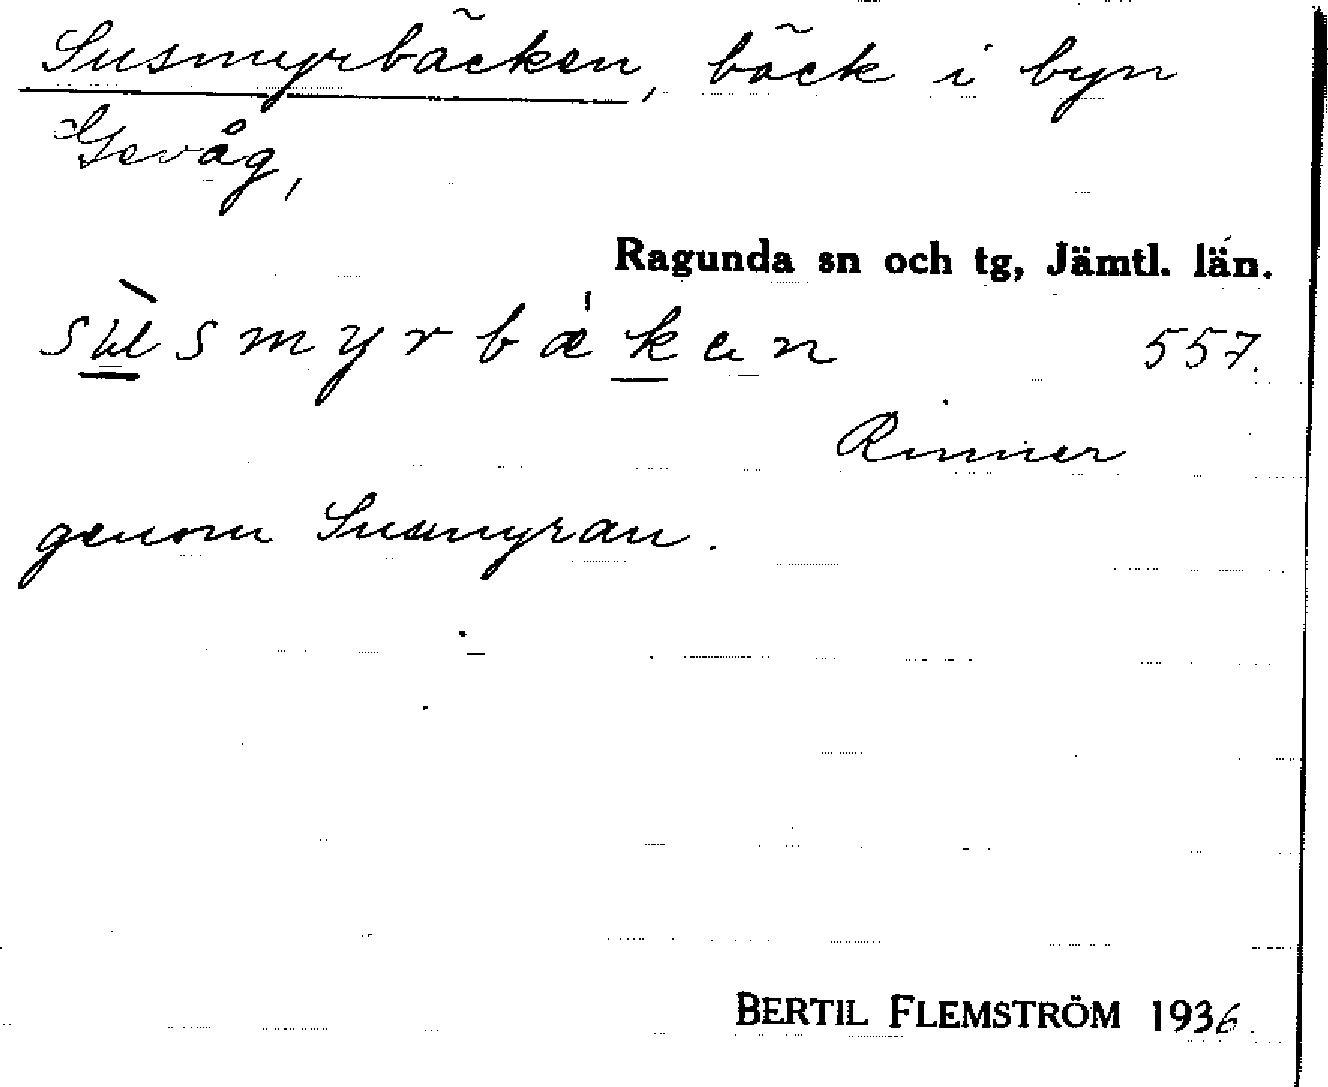 Susmyrbäcken, bäck i byn
Gevåg,
Ragunda sn och tg, Jämtl. län.
sʉ̀smyrbækan 557.
Rinner
genom Susmyran.
BERTIL FLEMSTRÖM 1936.